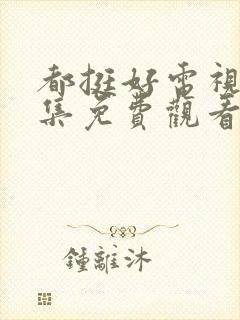 都挺好電視
集免費觀看
鍾離沐